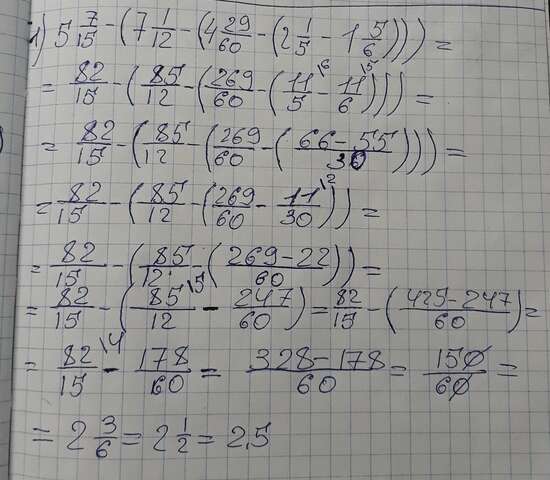 1) 5 7/15 - (7 1/12 - (4 29/60 - (2 1/5 - 1 5/6))) =
= 82/15 - (85/12 - (269/60 - (11/5 \6 - 11/6 \5))) =
= 82/15 - (85/12 - (269/60 - (66-55/30))) =
= 82/15 - (85/12 - (269/60 - 11/30 \2)) =
= 82/15 - (85/12 - (269-22/60)) =
= 82/15 - (85/12 \5 - 247/60) = 82/15 - (425-247/60) =
= 82/15 \4 - 178/60 = 328-178/60 = 150/60 =
= 2 3/6 = 2 1/2 = 2,5